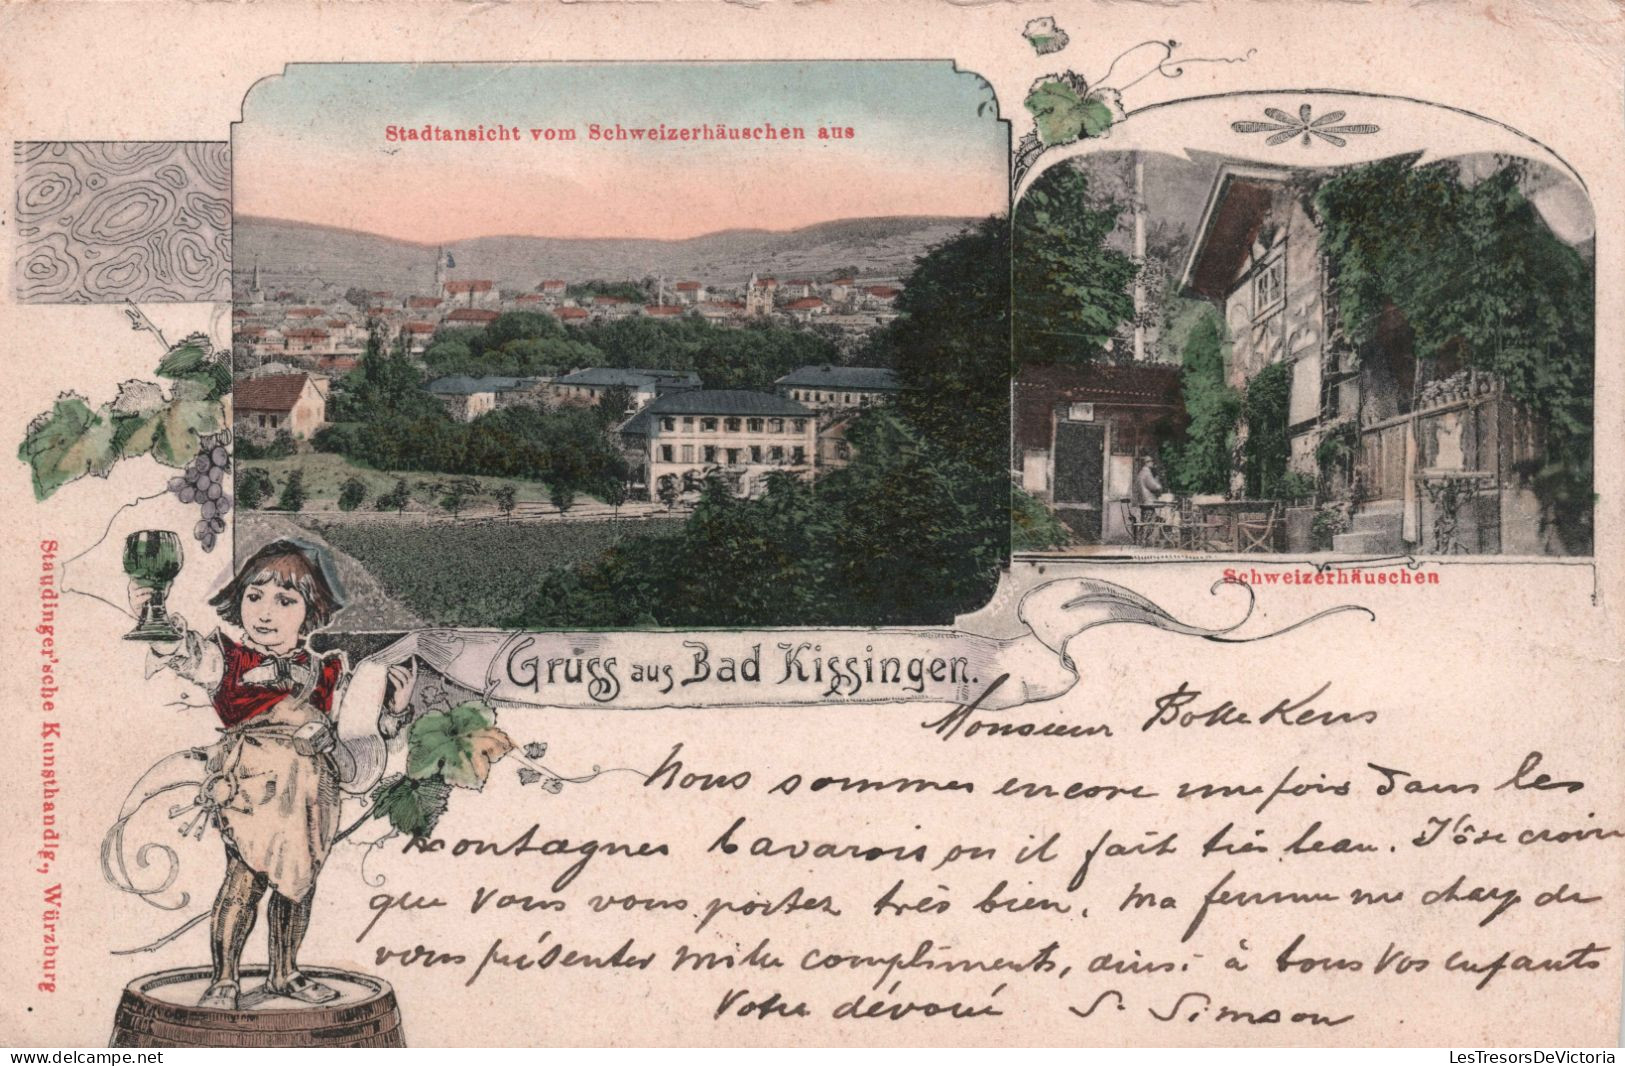 Stadtansicht vom Schweizerhäuschen aus
Schweizerhäuschen
Gruss aus Bad Kissingen.
Staudinger'sche Kunsthandlg., Würzburg
Monsieur
Nous sommes encore une fois dans les
montagnes bavarois ou il fait très beau. J'ôse croire
que vous vous portez très bien. Ma femme me charge de
vous présenter mille compliments, ainsi à tous vos enfants
Votre dévoué S. Simson
LesTresorsDeVictoria